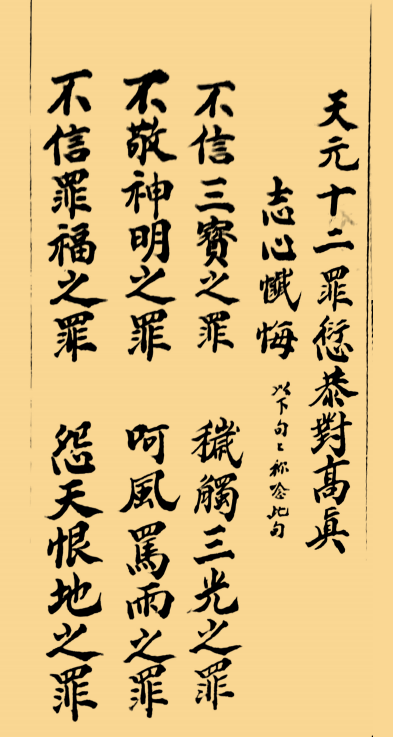 天元十二罪愆恭對高眞
志心懺悔 以下句々称念此句
不信三寶之罪 穢觸三光之罪
不敬神明之罪 呵風罵雨之罪
不信罪福之罪 怨天恨地之罪